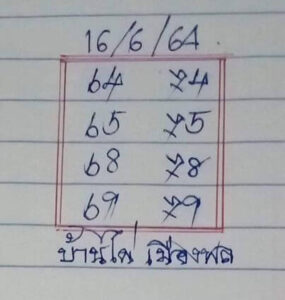 16/6/64
64 74
65 75
68 78
69 79
บ้านไผ่ เมืองพล